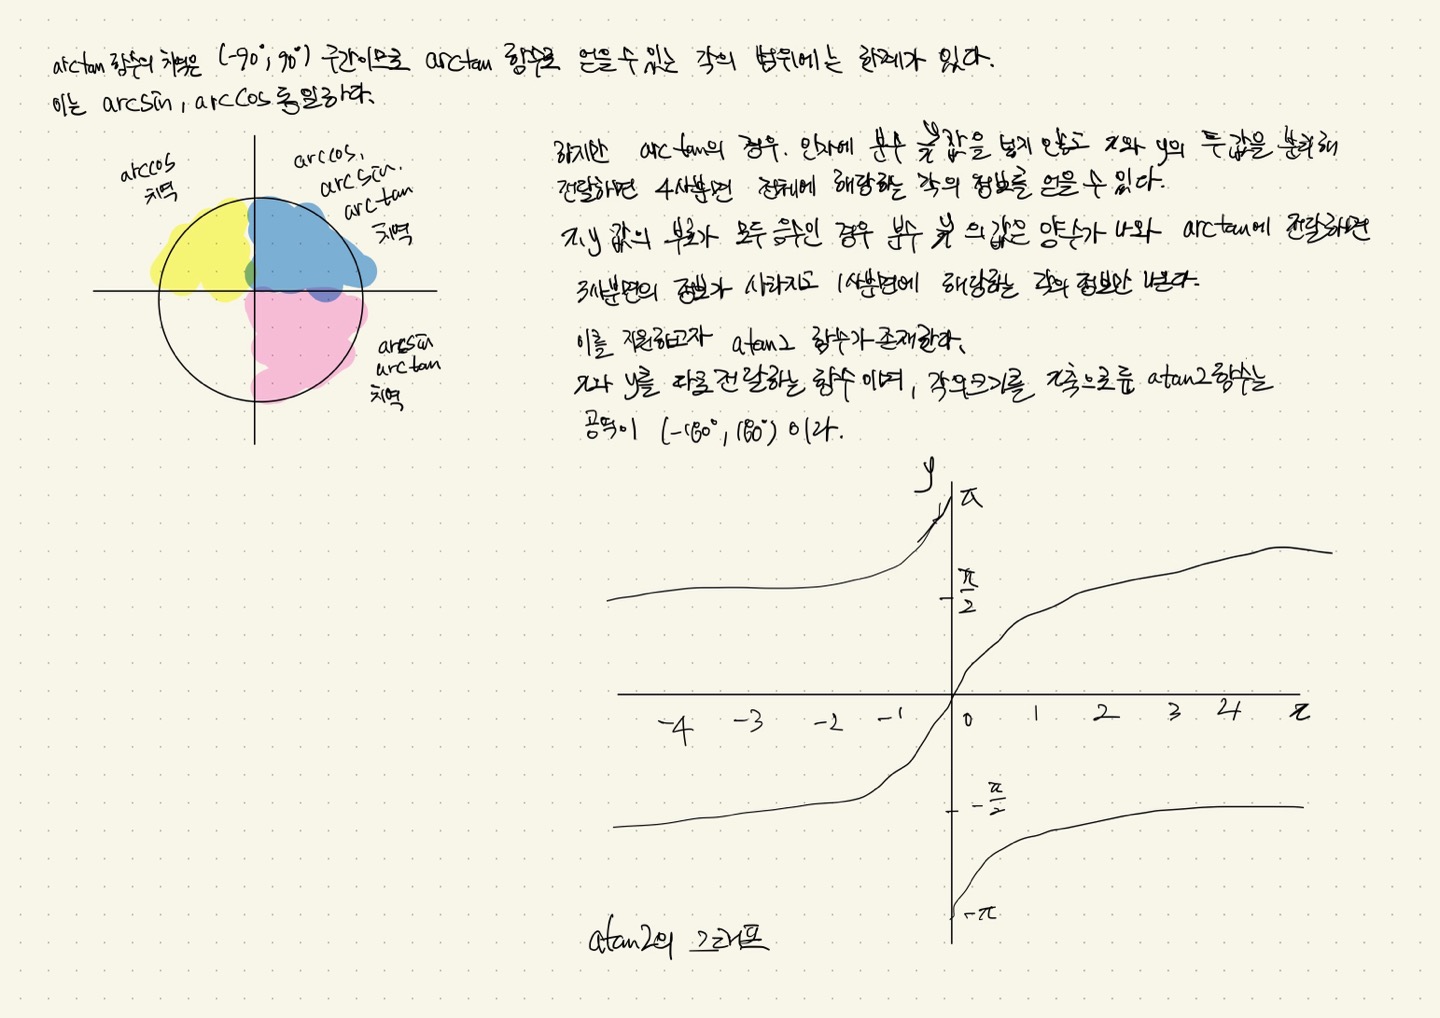 arctan 함수의 치역은 (-90°, 90°) 구간이므로 arctan 함수로 얻을 수 있는 각의 범위에는 한계가 있다.
이는 arcsin, arccos 동일하다.
arccos
치역
arccos,
arcsin.
arctan
치역
arcsin
arctan
치역
하지만 arctan의 경우. 인자에 분수 y/x 값을 넣지 않고 x와 y의 두 값을 분리해
전달하면 4사분면 전체에 해당하는 각의 정보를 얻을 수 있다.
x,y 값의 부호가 모두 음수인 경우 분수 y/x 의 값은 양수가 나와 arctan에 전달하면
3사분면의 정보가 사라지고 1사분면에 해당하는 각의 정보만 나온다.
이를 지원하고자 atan2 함수가 존재한다.
x와 y를 따로 전달하는 함수이며, 각의 크기를 x축으로 atan2함수는
공역이 (-180°, 180°) 이다.
y
π
π/2
-4 -3 -2 -1 0 1 2 3 4 x
-π/2
-π
atan2의 그래프